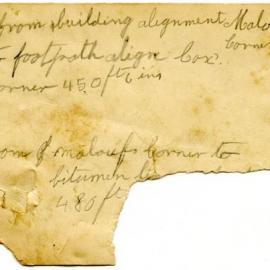 from building alignment Malo
Corner
to footpath align Cox.
corner 450 ft 6 ins
om of maloufs Corner to
bitumen
480 ft